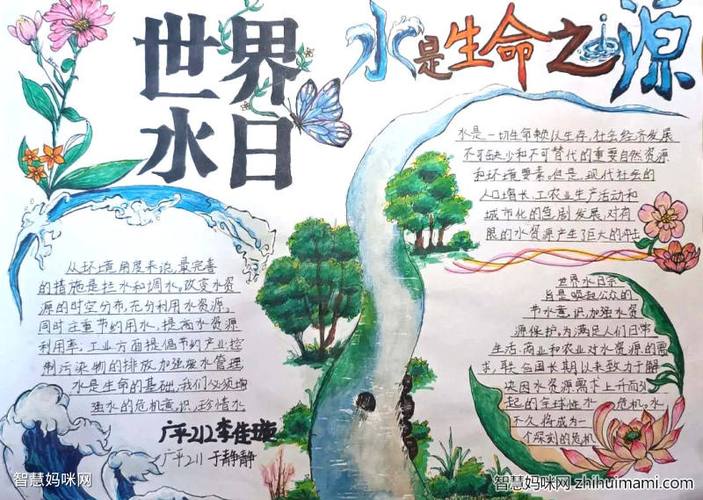 世界
水日
水是生命之源
水是一切生命赖以生存,社会经济发展
不可缺少和不可替代的重要自然资源
和环境要素,但是,现代社会的
人口增长、工农业生产活动和
城市化的急剧发展,对有
限的水资源产生了巨大的冲击
从环境角度来说,最完善
的措施是拦水和调水,改变水资
源的时空分布,充分利用水资源,
同时注重节约用水,提高水资源
利用率,工业方面提倡节约产业,控
制污染物的排放加强废水管理
水是生命的基础,我们必须增
强水的危机意识,珍惜水
世界水日宗
旨是唤起公众的
节水意识,加强水资
源保护,为满足人们日常
生活、商业和农业对水资源的需
求,联合国长期以来致力于解
决因水资源需求上升而引
起的全球性水危机,水
不久将成为一
个深刻的危机
广平212李佳璇
广平211 于静静
智慧妈咪网
智慧妈咪网 zhihuimami.com